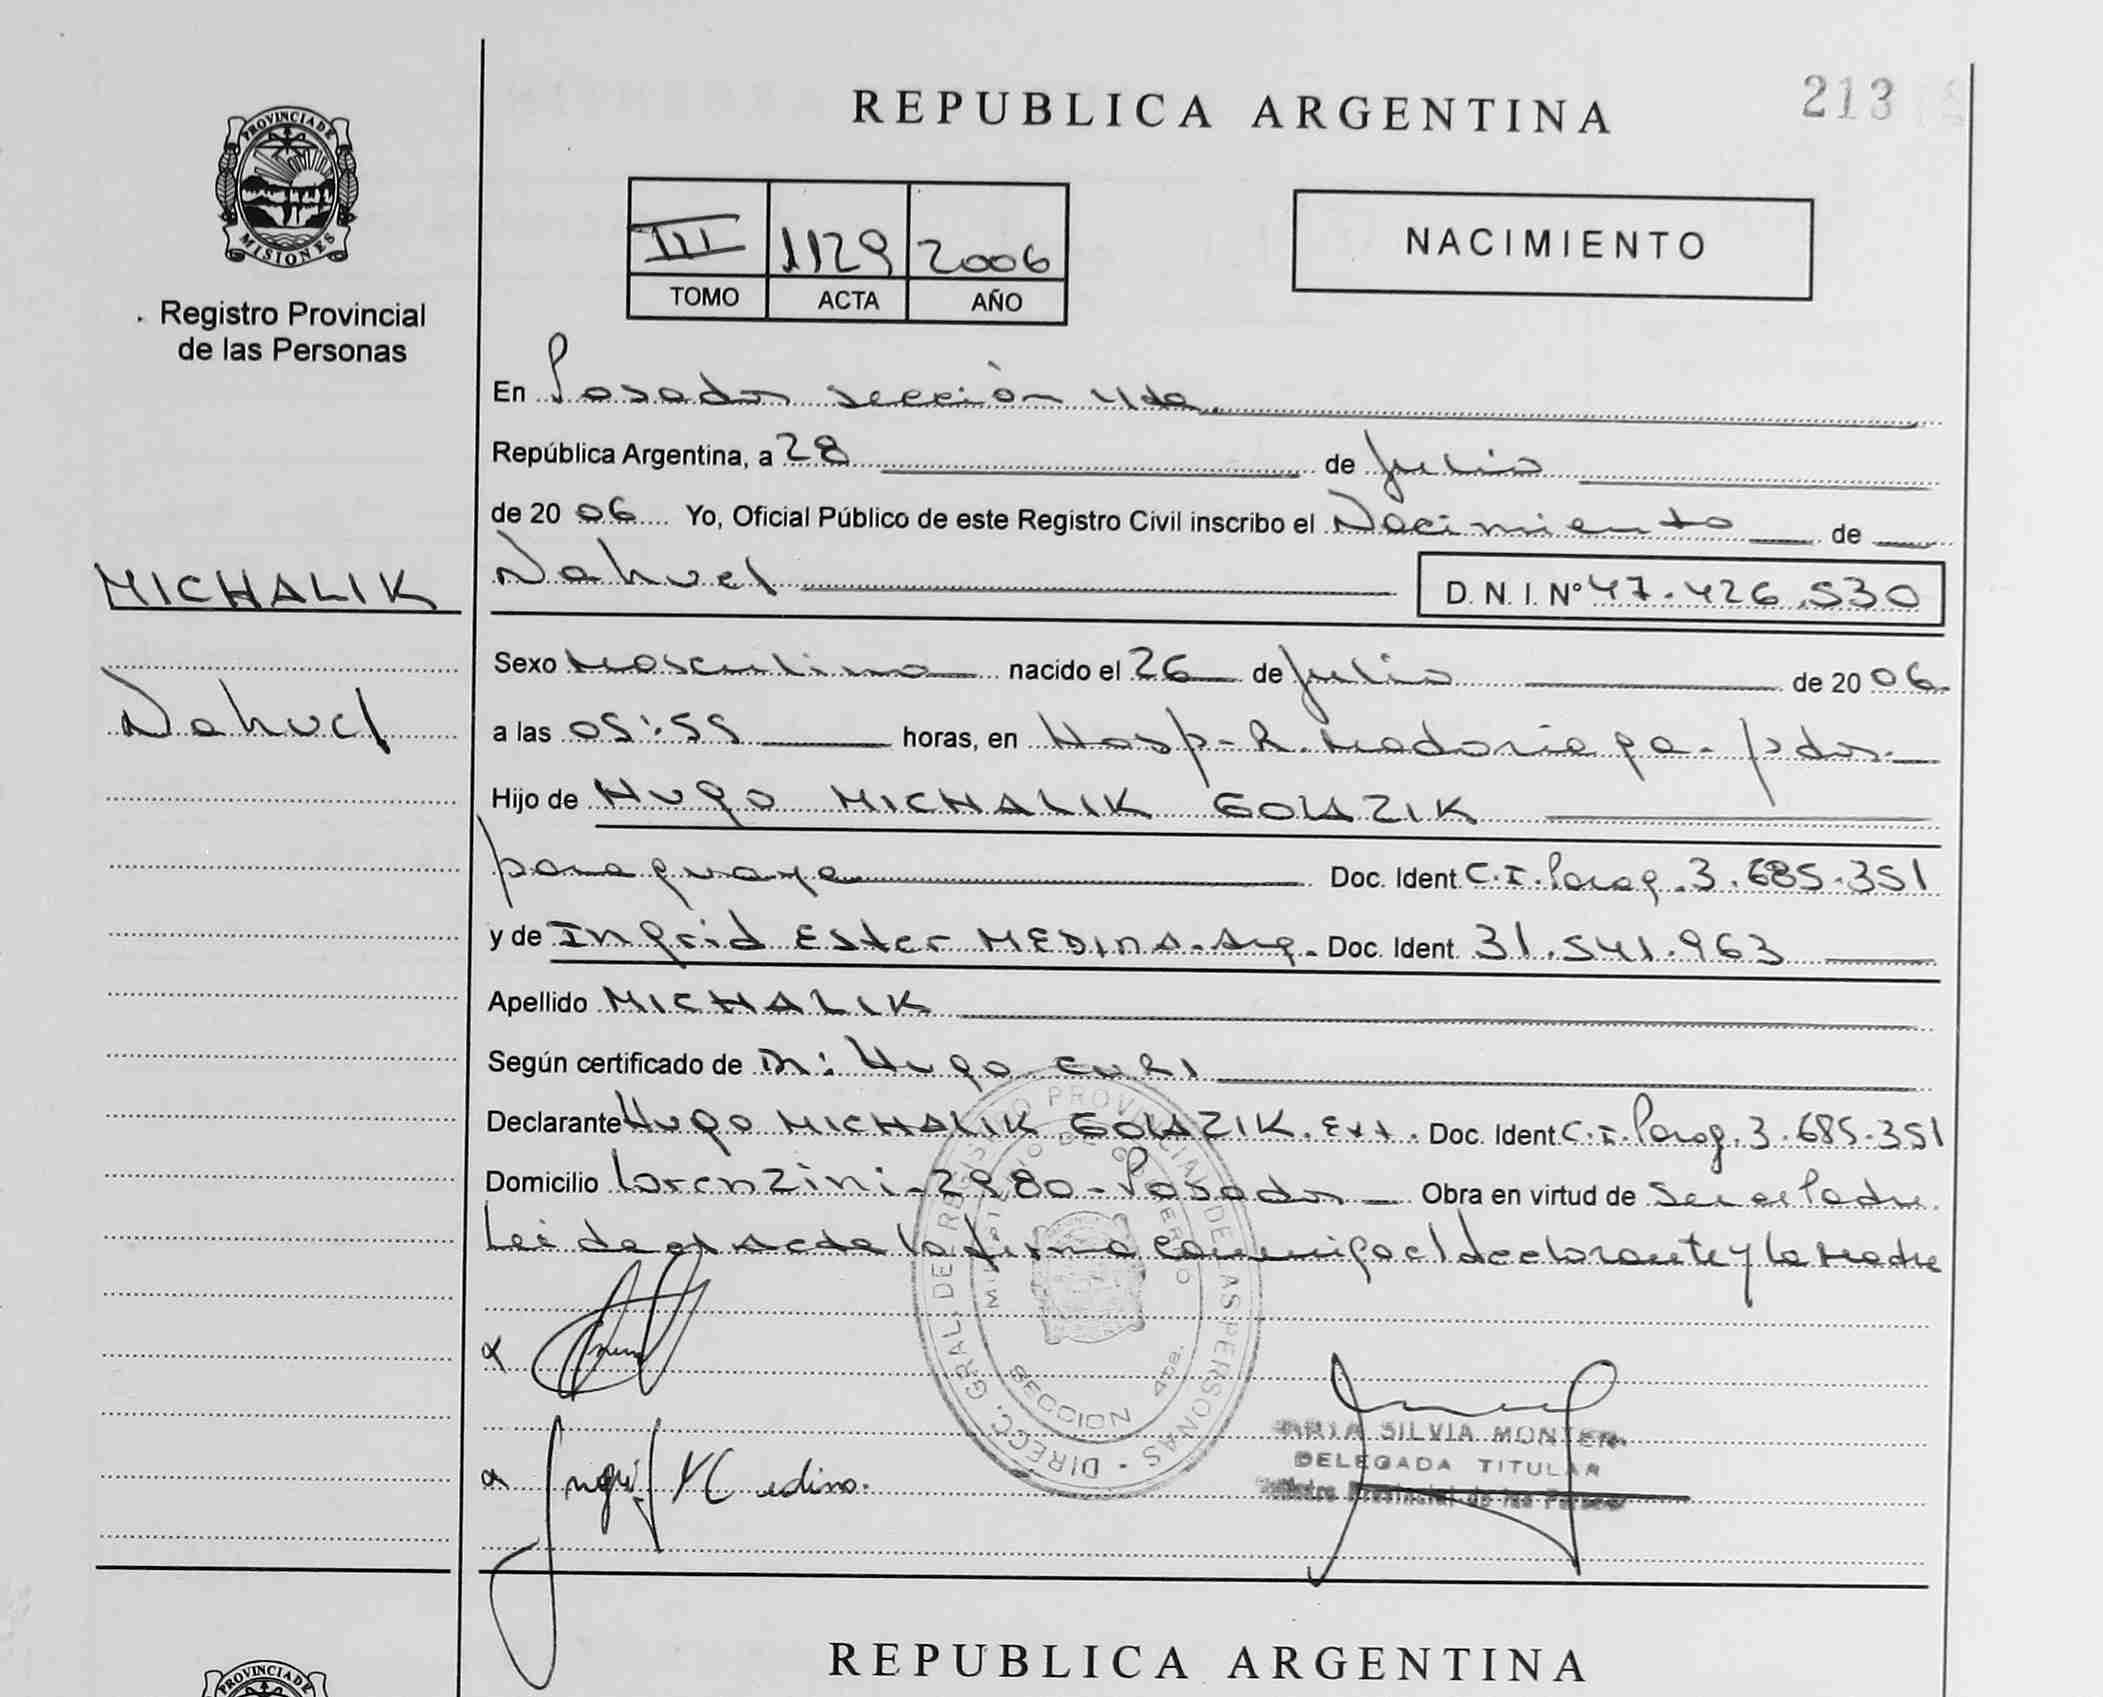 REPUBLICA ARGENTINA
213
PROVINCIA DE
MISIONES
Registro Provincial
de las Personas
III 1129 2006
TOMO ACTA AÑO
NACIMIENTO
En Posadas sección 4ta.
República Argentina, a 28 de Julio
de 2006 Yo, Oficial Público de este Registro Civil inscribo el Nacimiento de
MICHALIK
Nahuel
Nahuel D. N. I. Nº 47.426.530
Sexo Masculino nacido el 26 de Julio de 2006.
a las 05:55 horas, en Hosp-R. Madariaga- Pdas.
Hijo de Hugo MICHALIK GOLAZIK
paraguaya Doc. Ident C.I. Parag. 3.685.351
y de Ingrid Ester MEDINA-Arg. Doc. Ident. 31.541.963
Apellido MICHALIK
Según certificado de Dr: Hugo CURI
Declarante Hugo MICHALIK GOLAZIK. Ext. Doc. Ident C.I. Parag. 3.685.351
Domicilio Lorenzini-2980-Posadas Obra en virtud de ser el Padre.
Leída el Acta la firma conmigo el declarante y la Madre
DIRECC. GRAL. DE REGISTRO PROVINCIAL DE LAS PERSONAS
MINISTERIO DE GOBIERNO
SECCION 4ta.
Ingrid Medina.
MARIA SILVIA
DELEGADA TITULAR
Registro Provincial de las Personas
REPUBLICA ARGENTINA
PROVINCIA DE